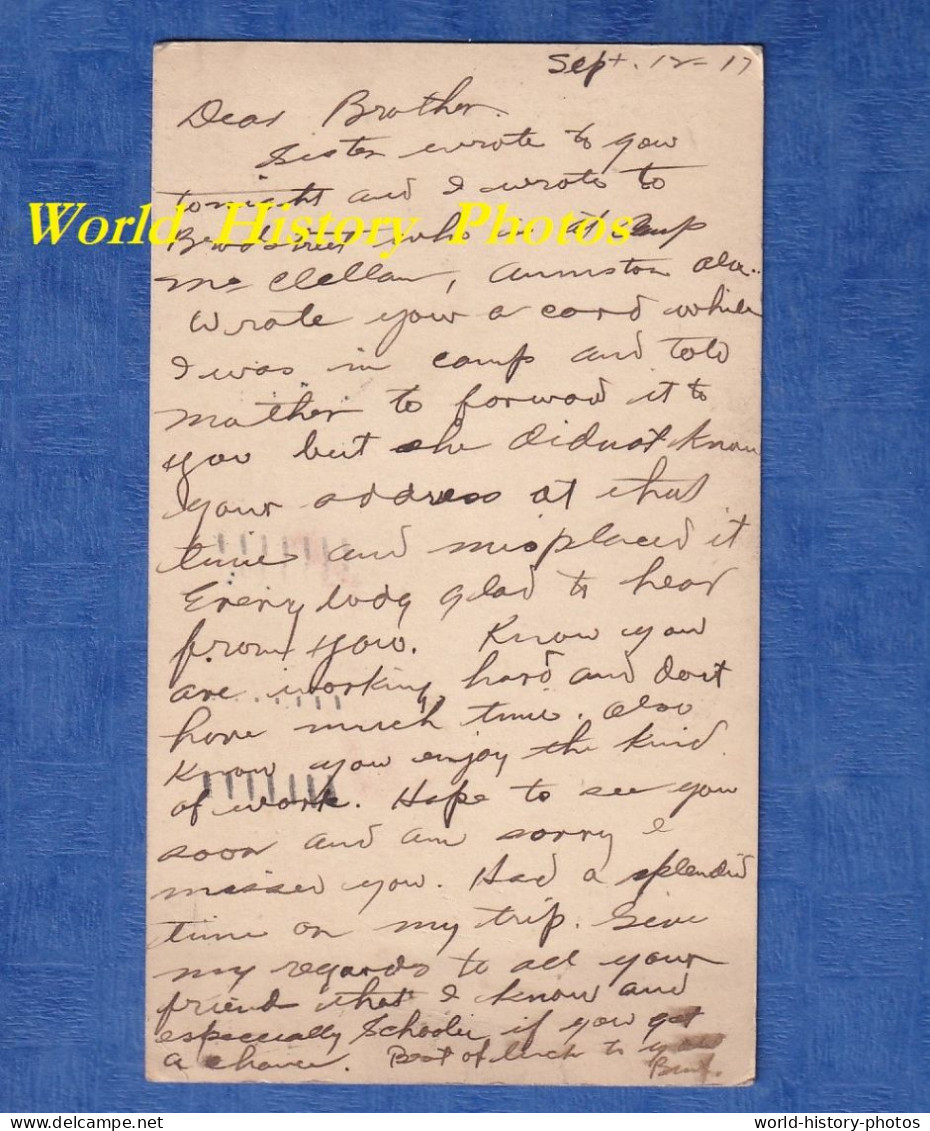 Sept. 12-17
Dear Brother.
Sister wrote to you
tonight and I wrote to
who is at Camp
World History Photos
Mc Clellan, Anniston Ala..
Wrote your a card while
I was in camp and told
mother to forward it to
you but she did not know
your address at that
time and misplaced it
Everybody glad to hear
from you. Know you
are working hard and dont
have much time. Also
know you enjoy the kind
of work. Hope to see you
soon and am sorry I
missed you. Had a splendid
time on my trip. Give
my regards to all your
friend that I know and
especially if you get
a chance. Best of luck to you
delcampe.net
world-history-photos